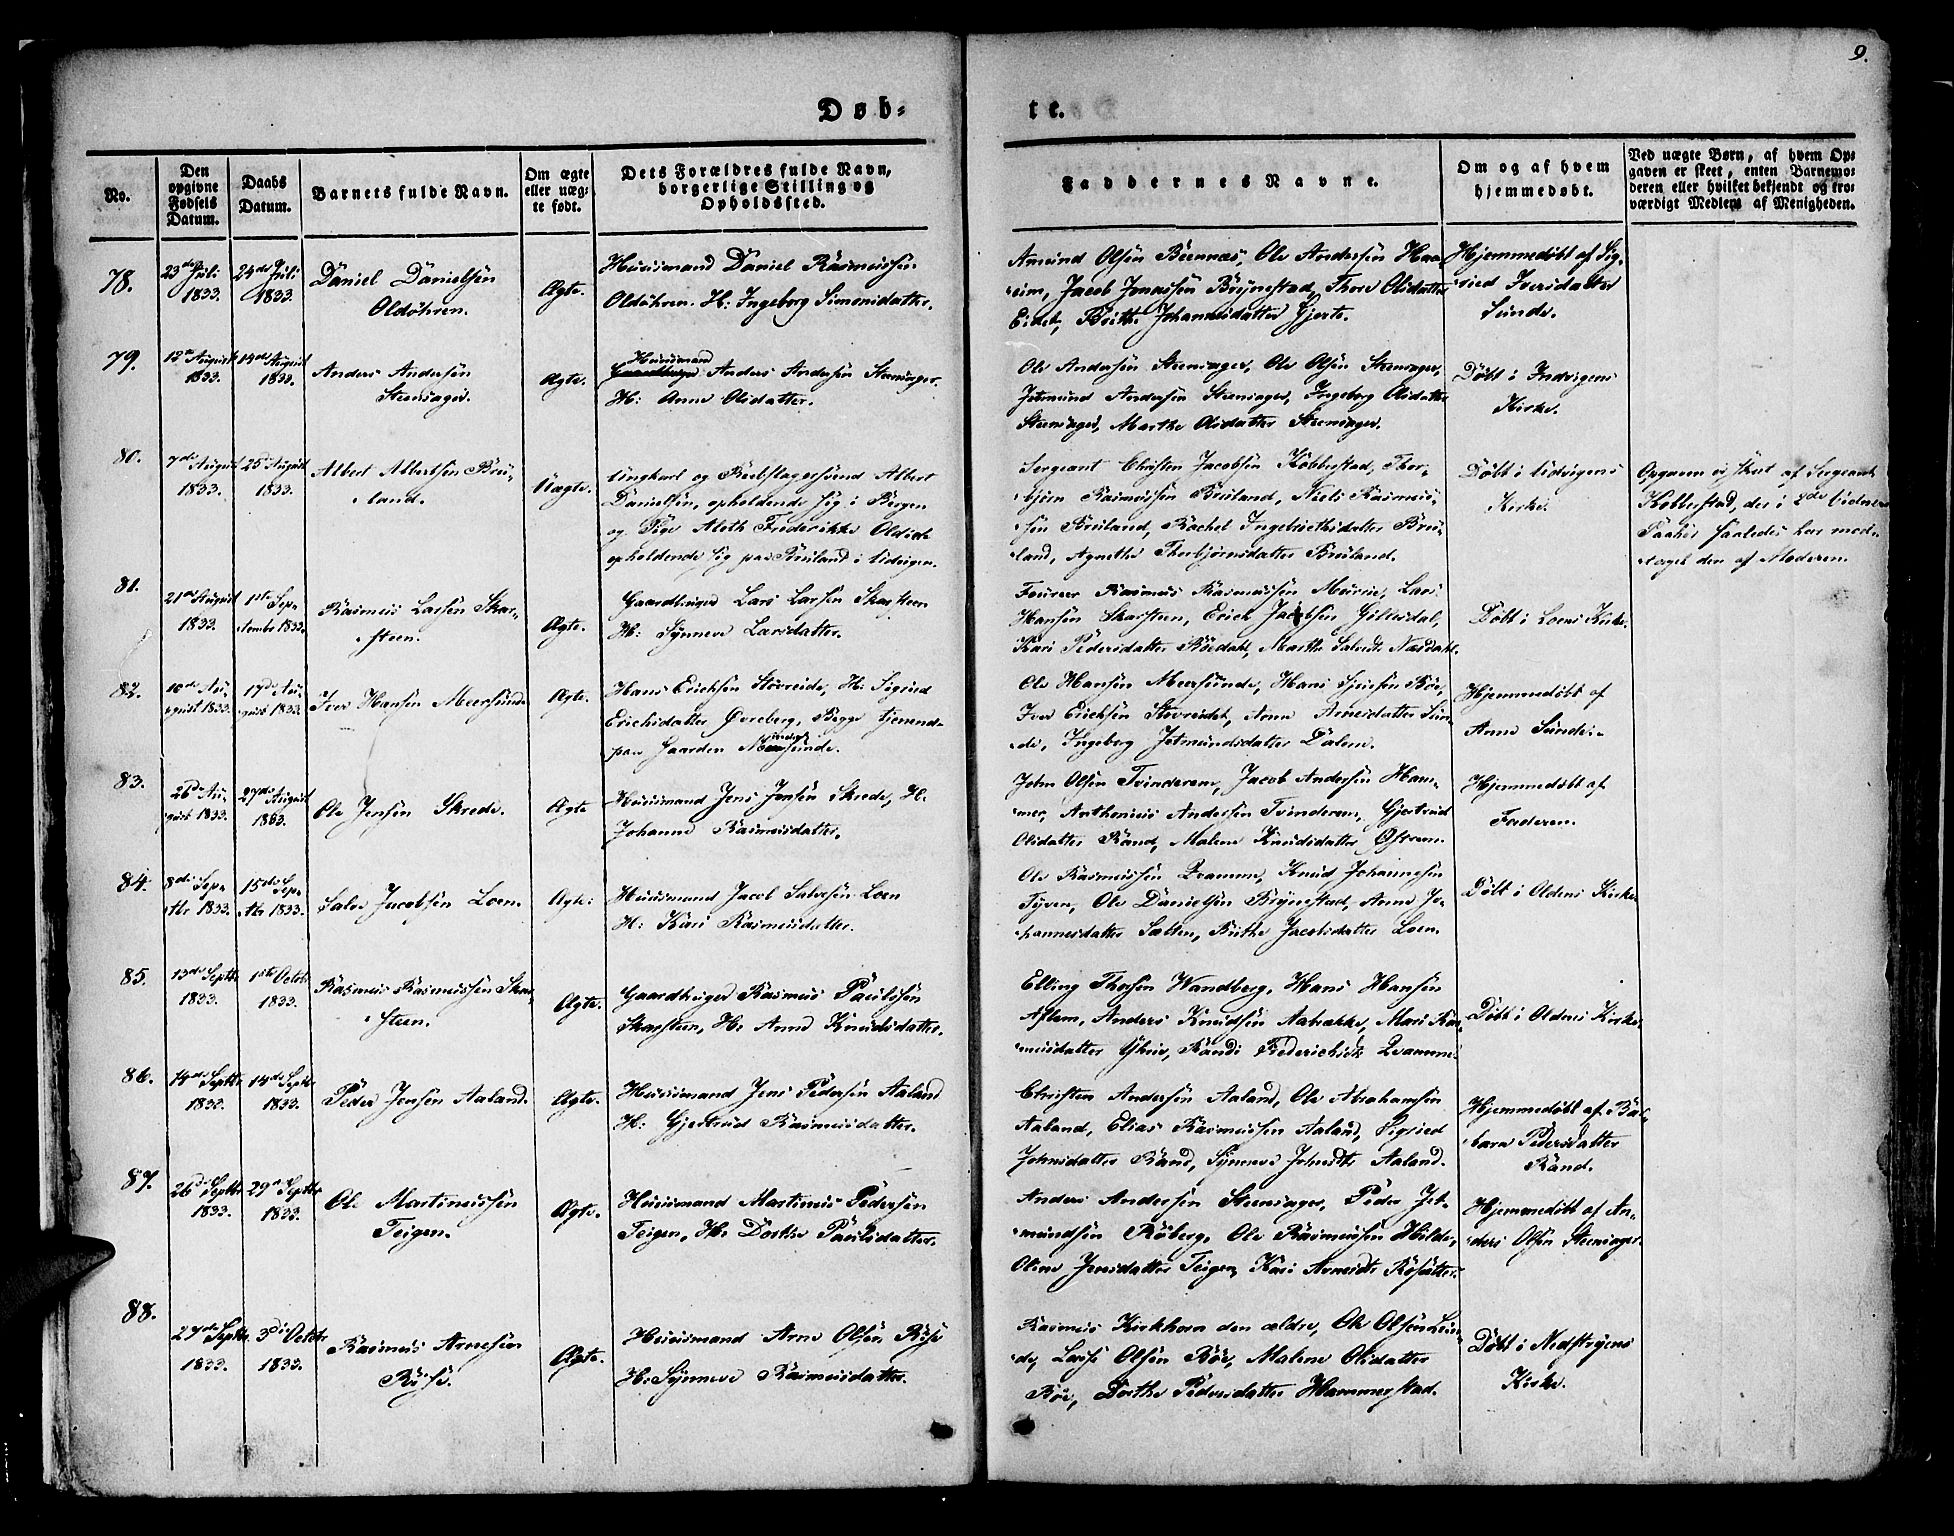 9.
Døb-
te.
No.
Den opgivne Fødsels Datum.
Daabs Datum.
Barnets fulde Navn.
Om ægte eller uægte født.
Dets Forældres fulde Navn, borgerlige Stilling og Opholdssted.
Faddernes Navne.
Om og af hvem hjemmedøbt.
Ved uægte Børn, af hvem Op-
gaven er skeet, enten Barnemo-
deren eller hvilket bekjendt og tro-
værdigt Medlem af Menigheden.
78.
23de Juli 1833.
24de Juli 1833.
Daniel Danielsen
Oldøhren.
Ægte.
Huusmand Daniel Rasmussen
Oldøhren. H: Ingeborg Simonsdatter.
Amund Olsen Beenæs, Ole Andersen Haa-
eim, Jacob Jonassen Brynestad, Thore Olsdatter
Eidet, Brithe Johannesdatter Hjerte.
Hjemmedøbt af Sig-
ried Iversdatter
Sunde.
79.
12te August 1833.
14de August 1833.
Anders Andersen
Steensager.
Ægte.
Huusmand
Anders Andersen Steensager.
H: Anne Olsdatter.
Ole Andersen Steensager, Ole Olsen Steensager,
Jetmund Andersen Steensager, Ingeborg Olsdatter
Steensager, Marthe Olsdatter Steensager.
Døbt i Indvigens
Kirke.
80.
7de August 1833.
25de August 1833.
Albert Albertsen Brui-
land.
Uægte.
Ungkarl og Rebslagersvend Albert
Danielsen, opholdende sig i Bergen
og Pige Aleth Frederikke Oldsd.
opholdende sig paa Bruiland i Udvigen.
Sergeant Christen Jacobsen Kobberstad, Thor-
bjørn Rasmussen Bruiland, Niels Rasmus-
sen Bruiland, Rachel Ingebrethsdatter Brui-
land, Agnethe Thorbjørnsdatter Bruiland.
Døbt i Udvigens
Kirke.
Opgaven er skeet af Sergeant
Kobberstad, der i 2de Vidners
Paahør saaledes har mod-
taget den af Moderen.
81.
21de August 1833.
1ste Sep-
tember 1833.
Rasmus Larsen Skar-
steen.
Ægte.
Gaardbruger Lars Larsen Skarsteen
H: Synneve Larsdatter.
Foureer Rasmus Rasmussen Muri, Lars
Hansen Skarsteen, Erick Jacobsen Gillesdal,
Kari Pedersdatter Røedahl, Marthe Salvesdt Næsdahl.
Døbt i Loens Kirke.
82.
10de Au-
gust 1833.
17de Au-
gust 1833.
Iver Hansen Meersunde
Ægte.
Hans Erichsen Støvreide, H: Sigrid
Erichsdatter Øvreberg, Begge tjenende
paa Gaarden Meersunde.
Ole Hansen Meersunde, Hans Sjursen Bøe,
Iver Erichsen Støvreidet, Anne Arnesdatter Sun-
de, Ingeborg Jetmundsdatter Dalene.
Hjemmedøbt af
Anne Sunde.
83.
26de Au-
gust 1833.
27de August
1833.
Ole Jensen Skrede.
Ægte
Huusmand Jens Jensen Skrede, H:
Johanne Rasmusdatter.
John Olsen Tvinderem, Jacob Andersen Ham-
mer, Anthonius Andersen Tvinderem, Gjertrud
Olsdatter Rand, Malene Knudsdatter Østrem.
Hjemmedøbt af
Faderen.
84.
8de Sep-
tbr 1833.
15de Sep-
tbr 1833.
Salve Jacobsen Loen.
Ægte.
Huusmand Jacob Salvesen Loen
H: Kari Rasmusdatter.
Ole Rasmussen Qvamme, Knud Johannesen
Tyven, Ole Danielsen Brynestad, Anne Jo-
hannesdatter Sætten, Brithe Jacobsdatter Loen.
Døbt i Oldens Kirke.
85.
13de Septbr
1833.
1ste Octobr
1833.
Rasmus Rasmussen Skar-
steen.
Ægte.
Gaardbruger Rasmus Paulsen
Skarsteen, H: Anne Knudsdatter.
Elling Thoesen Wandberg, Hans Hansen
Aflem, Anders Knudsen Aabrække, Mari Ras-
musdatter Yhrie, Randi Frederichsdt Qvamme.
Døbt i Oldens Kirke.
86.
14de Septbr
1833.
14de Septbr
1833.
Peder Jensen Aaland.
Ægte.
Huusmand Jens Pedersen Aaland
H: Gjertrud Rasmusdatter.
Christen Andersen Aaland, Ole Abrahamsen
Aaland, Elias Rasmussen Aaland, Sigried
Johnsdatter Rand, Synneve Johnsdt Aaland.
Hjemmedøbt af Bar-
bara Pedersdatter
Rand.
87.
26de Septbr
1833.
29de Septbr
1833.
Ole Martinussen
Teigen.
Ægte.
Huusmand Martinus Pedersen
Teigen, H: Dorthe Paulsdatter.
Anders Andersen Steensager, Peder Jet-
mundsen Røberg, Ole Rasmussen Hilde,
Olene Jensdatter Teigen, Kari Arnesdt Røsætter.
Hjemmedøbt af An-
ders Olsen Steensager.
88.
27de Septbr
1833.
3die Octobr
1833.
Rasmus Arnesen
Røise.
Ægte.
Huusmand Arne Olsen Røise
H: Synneve Rasmusdatter.
Rasmus Kirkhorn den ældre, Ole Olsen Lun-
de, Lars Olsen Bøe, Malene Olsdatter
Bøe, Dorthe Pedersdatter Hammerstad.
Døbt i Nedstrynens
Kirke.